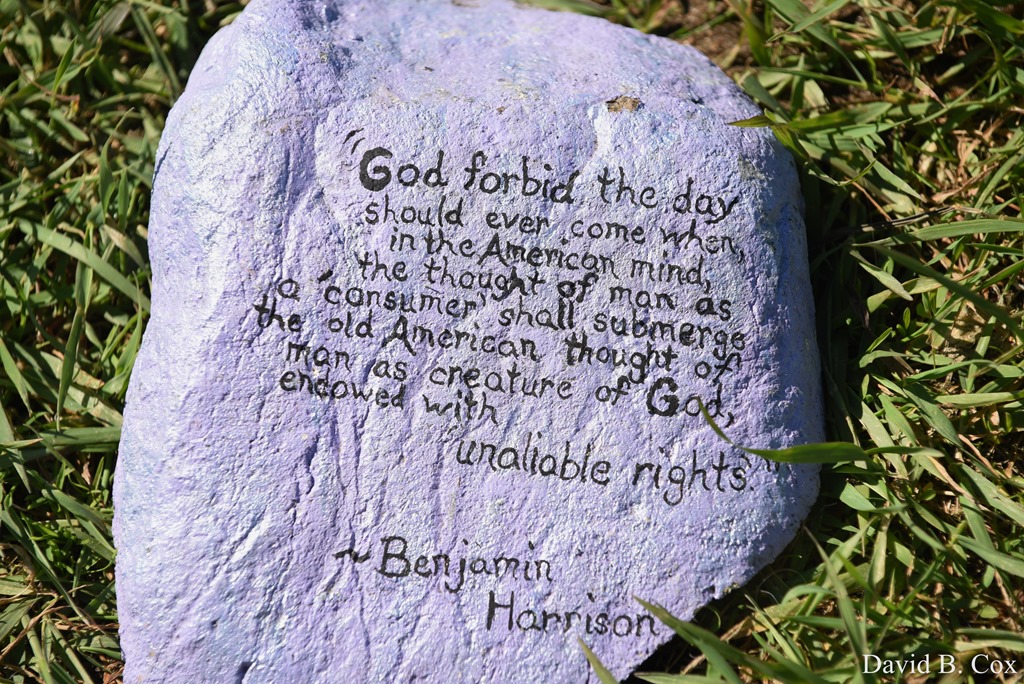 "God forbid the day
should ever come when,
in the American mind,
the thought of man as
a 'consumer' shall submerge
the old American thought of
man as creature of God,
endowed with
unaliable rights."
~Benjamin
Harrison
David B. Cox